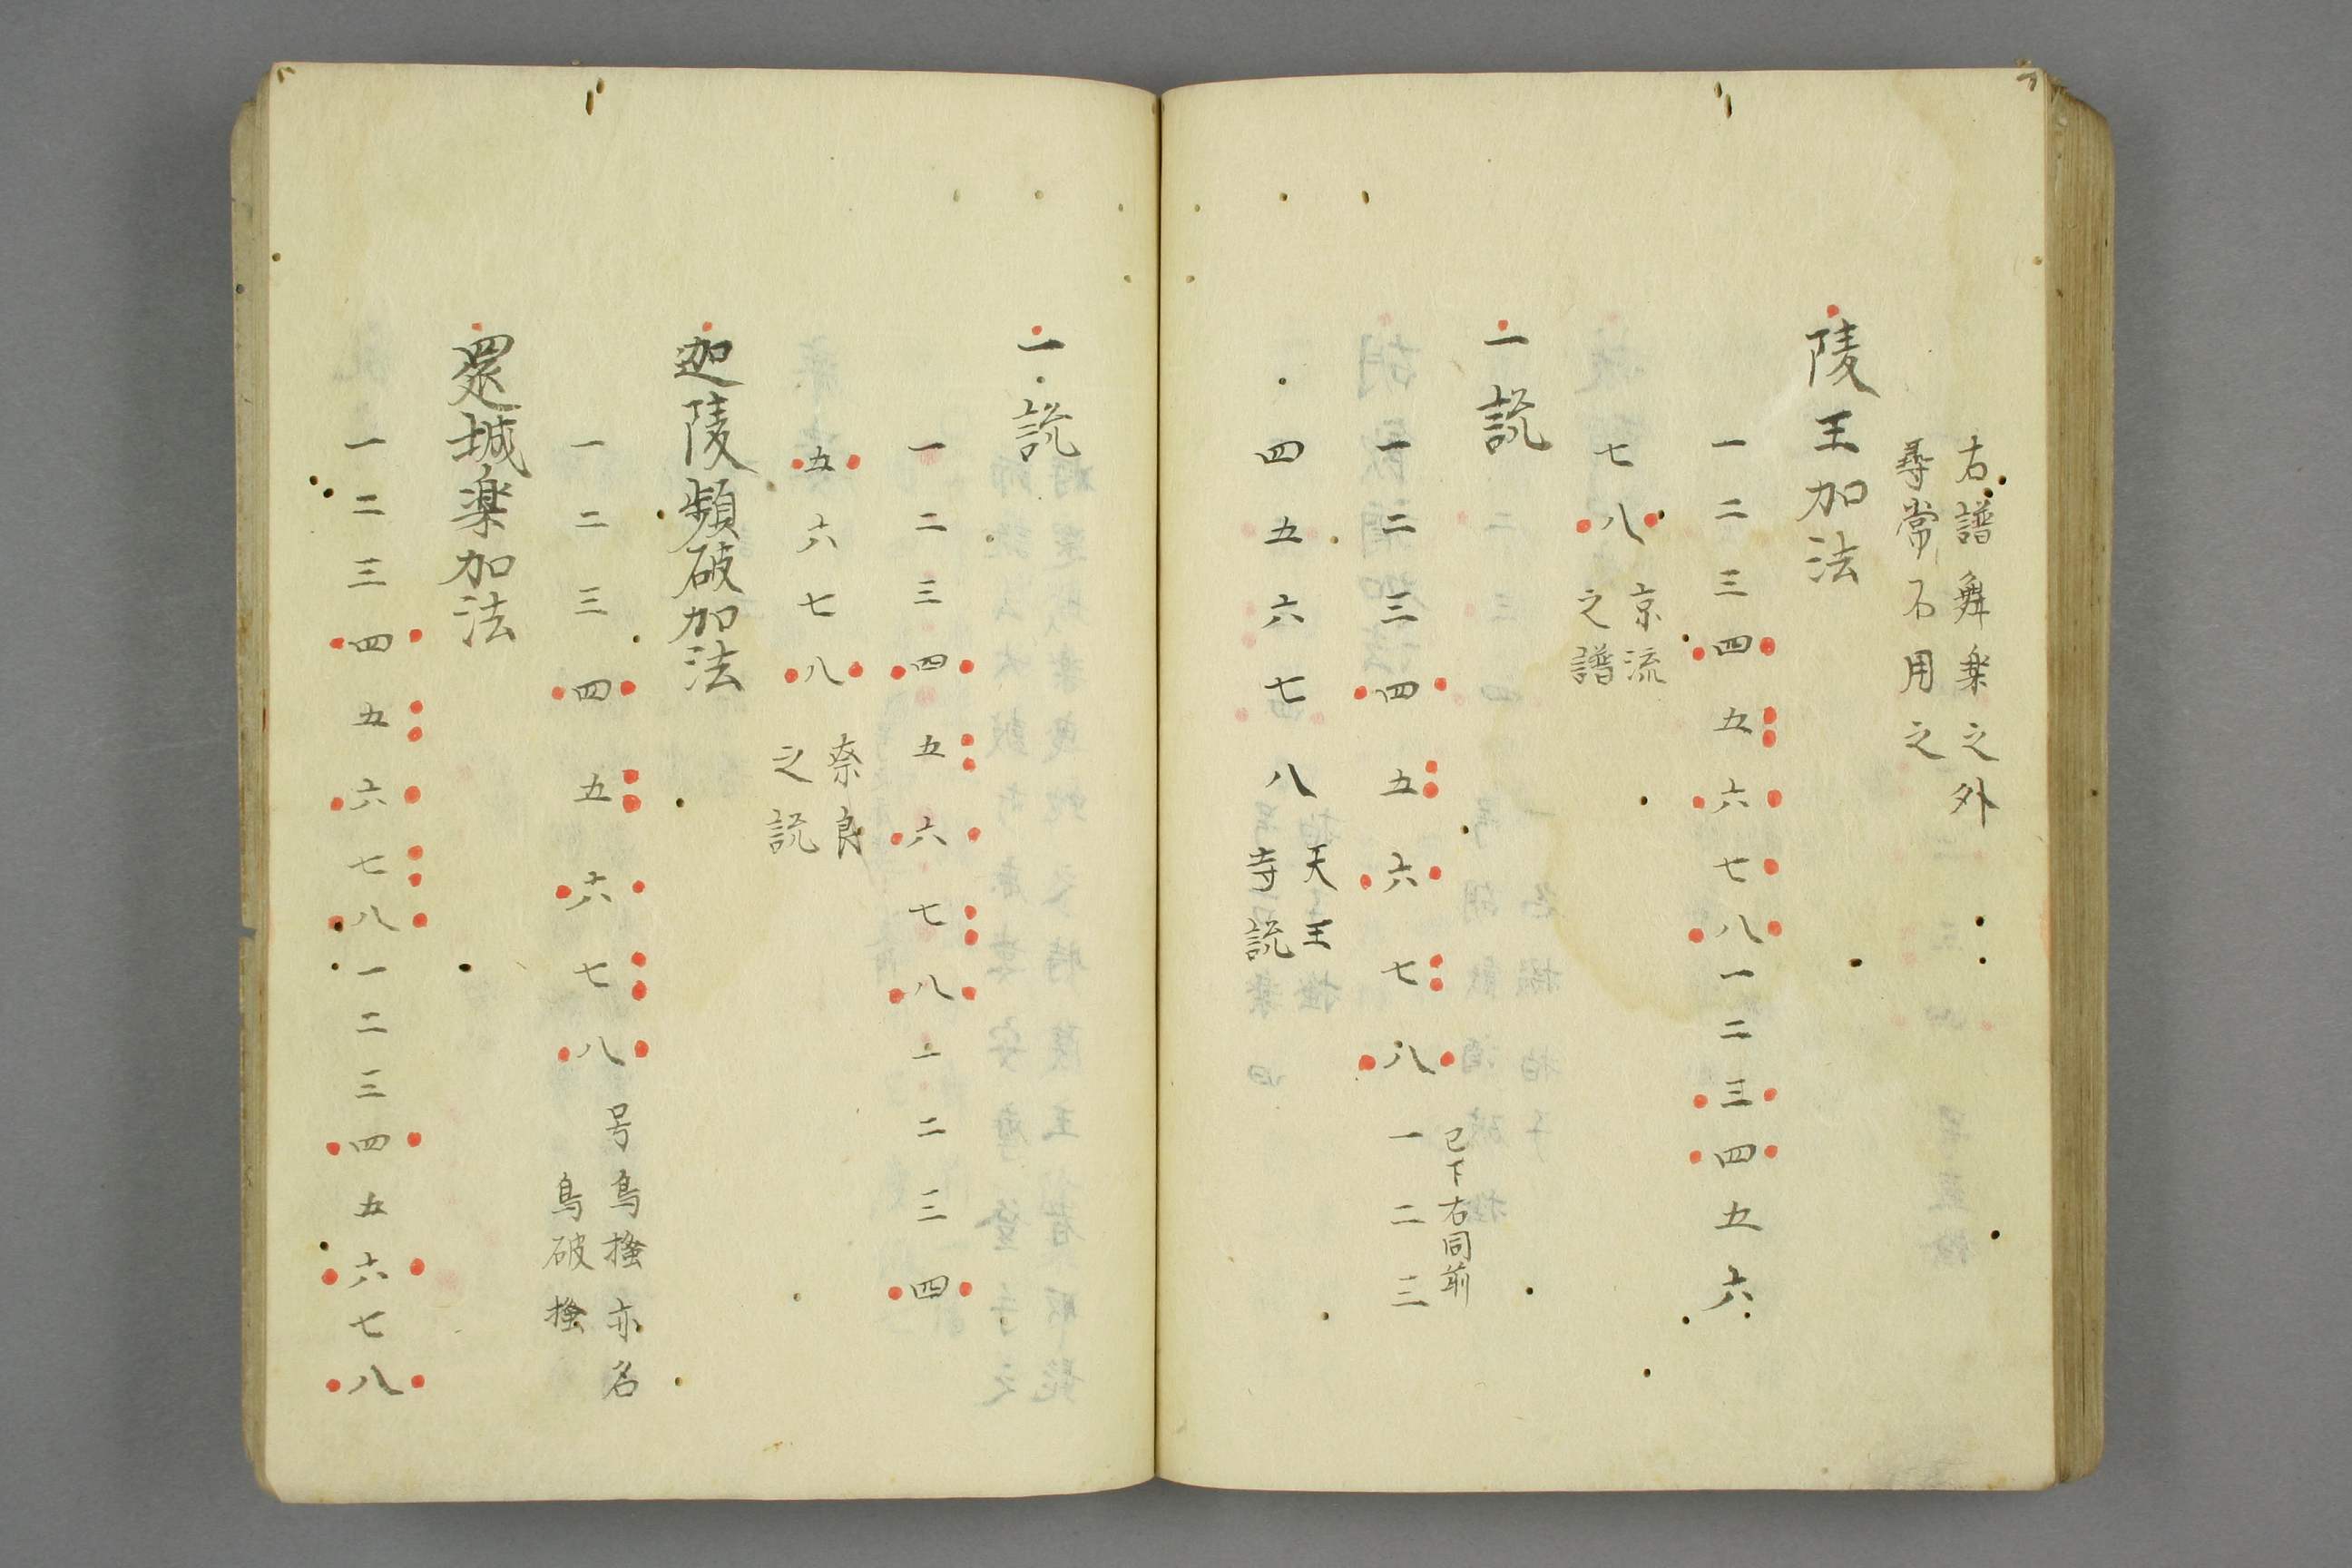 右譜舞楽之外
尋常不用之
陵王加法
一二三四五六七八一二三四五六
七八
京流
之譜
一説
一二三四五六七八一二三
已下右同前
四五六七八
天王
寺説
一説
一二三四五六七八一二三四
五六七八
奈良
之説
迦陵頻破加法
一二三四五六七八
号鳥掻亦名
鳥破掻
還城楽加法
一二三四五六七八一二三四五六七八